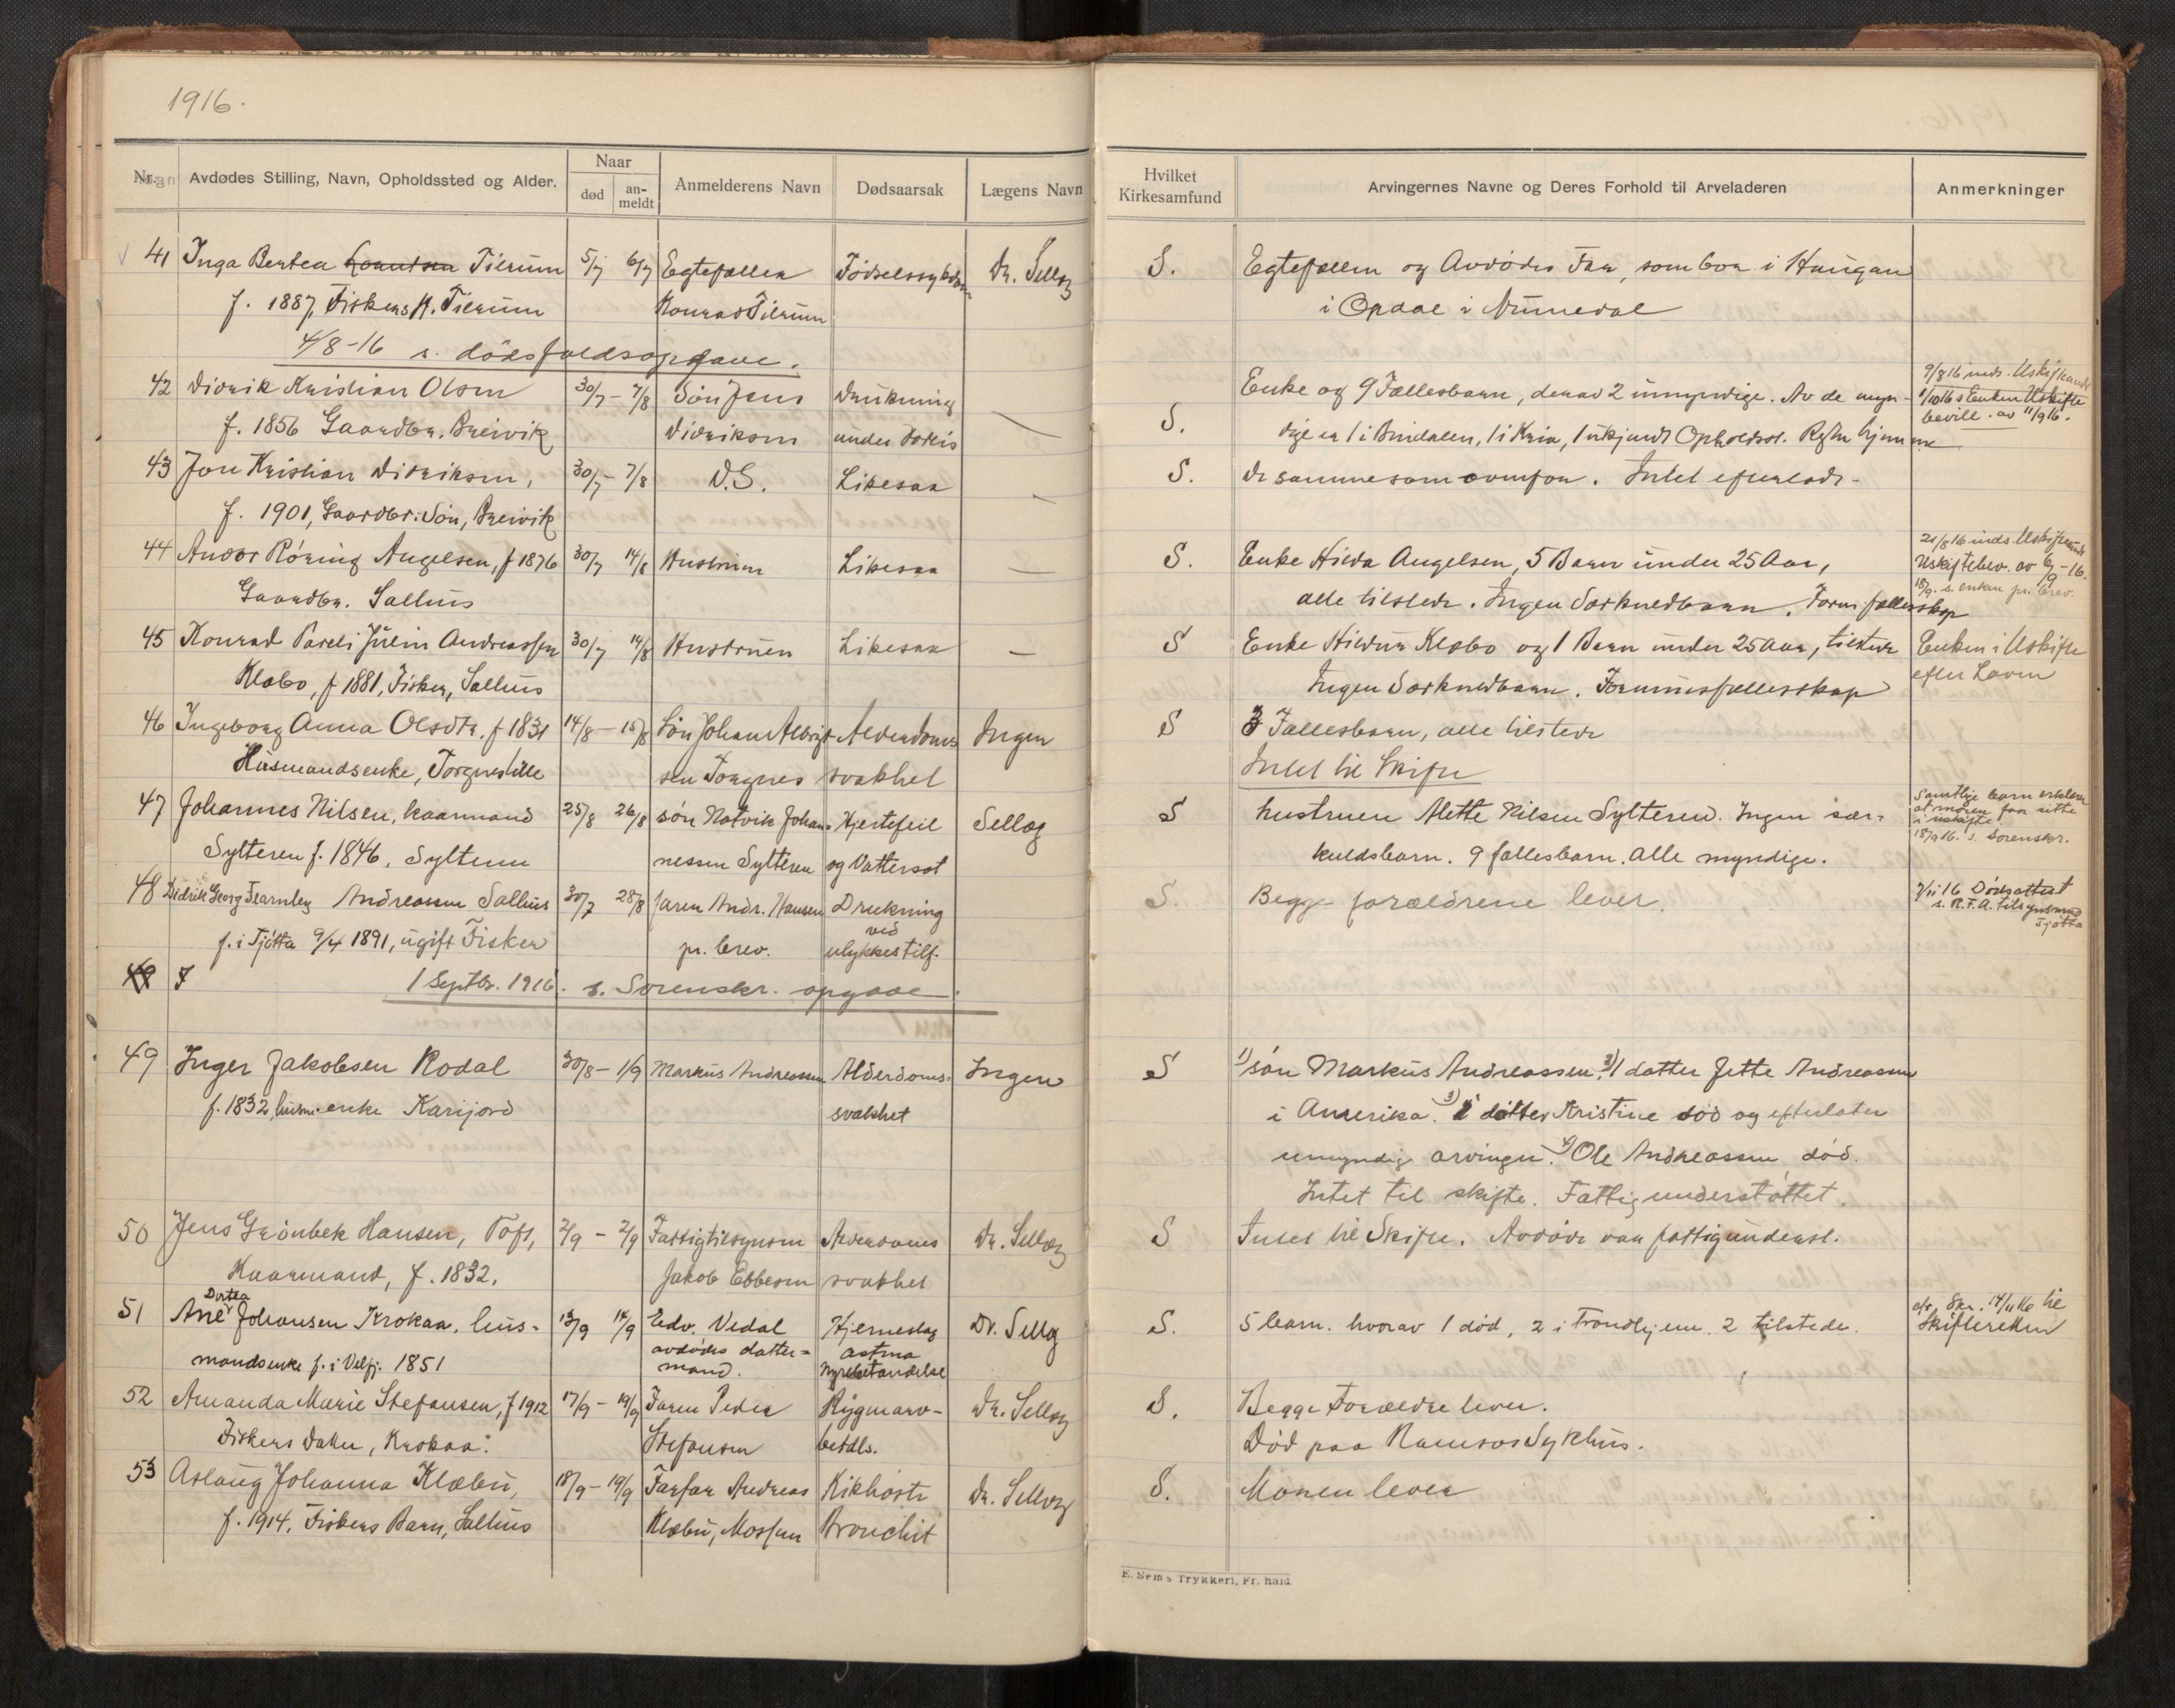 1916.
Nr. Avdødes Stilling, Navn, Opholdssted og Alder. Naar død an-meldt Anmelderens Navn Dødsaarsak Lægens Navn
Hvilket Kirkesamfund Arvingernes Navne og Deres Forhold til Arveladeren Anmerkninger
41 Inga Bertea Tilrum 5/7 6/7 Egtefællen Fødselssykdom Dr. Selløg S. Egtefællen og Avdødes Far, som bor i
f. 1887, Fiskers K. Tilrum Konrad Tilrum i Opdal i Numedal
4/8-16 s. dødsfaldsopgave.
42 Didrik Kristian Olsen 30/7 - 7/8 Søn Jens Drukning S. Enke og 9 Fællesbarn, derav 2 umyndige. Av de myn-
f. 1856 Gaardbr. Breivik Didriksen under Fiskeri dige er 1 i Bindalen, 1 i Kria, 1 ukjendt Opholdsst. Resten hjemme
9/8 16 inds. Uskifteands
1/10 16 s Enken Uskifte
bevill. av 11/9 16.
43 Jon Kristian Didriksen, 30/7 - 7/8 D.S. Likesaa S. De samme som ovenfor. Intet efterladt.
f. 1901, Gaardbr. Søn, Breivik
44 Anton Røring Angelsen, f 1876 30/7 14/8 Hustruen Likesaa — S. Enke Hilda Angelsen, 5 Barn under 25 Aar,
Gaardbr. Salhus alle tilstede. Ingen Særkuldbarn. Form. fællesskap
21/8 16 inds. Uskifteands
Uskiftebev. av 6/9-16.
18/9. s. enken pr. brev.
45 Konrad Pareli Julin Andreassen 30/7 14/8 Hustruen Likesaa — S Enke Hildur Klæbo og 1 Barn under 25 Aar, tilstede Enken i Uskifte
Klæbo, f 1881, Fisker, Salhus Ingen Særkuldbarn. Formuesfællesskap efter Loven
46 Ingeborg Anna Olsdtr. f 1831 14/8 - 15/8 Søn Johan Albrigt Alderdoms Ingen S 3 Fællesbarn, alle tilstede
Husmandsenke, Torgnestille sen Torgnes svakhet Intet til Skifte
47 Johannes Nilsen, kaarmand 25/8 26/8 søn Hatvik Johan- Hjertefeil Selløg S hustruen Alette Nilsen Sylteren. Ingen sær-
Sylteren f. 1846, Sylteren nessen Sylteren og Vattersot kuldsbarn. 9 fællesbarn. Alle myndige.
Samtlige barn erklærer
at moren faar sitte
i uskifte
18/9 16. s. Sorenskr.
48 Didrik Georg Fearnley Andreassen Salhus 30/7 28/8 faren Andr. Hansen Drukning S. Begge forældrene lever.
f. i Tjøtta 9/4 1891, ugift Fisker pr. brev. ved ulykkestilf.
7/11 16 Dødsattest
s. R.F.A. tilsynsmd
Tjøtta
49 1 Septbr. 1916. s. Sorenskr. opgave.
49 Inger Jakobsen Rodal 30/8 - 1/9 Markus Andreassen Alderdoms- Ingen S 1) søn Markus Andreassen, 2) 1 datter Jette Andreassen
f. 1832, husm. enke Karijord svakhet i Amerika. 3) datter Kristine død og efterlater
umyndig arvinger. 4) Ole Andreassen død.
Intet til skifte. Fattigunderstøttet.
50 Jens Grönbek Hansen, Toft, 2/9 - 2/9 Fattigtilsynsm Alderdoms Dr. Selløg S Intet til Skifte. Avdøde var fattigunderst.
Kaarmand, f. 1832. Jakob Ebbesen svakhet
51 Ane Dortea Johansen Krokaa, hus- 13/9 14/9 Edv. Vedal Hjerneslag Dr. Selløg S. 5 barn. hvorav 1 død, 2 i Trondhjem. 2 tilstede.
mandsenke f. i Velfj. 1851 avdødes datter-mand. astma Nyrebetændelse
Skr. 14/11 16 til
Skifteretten
52 Amanda Marie Stefansen, f 1912 17/9 - 19/9 Faren Peder Rygmarv- Dr. Selløg S. Begge Forældre lever.
Fiskers Datter, Krokaa. Stefansen betdls. Død paa Namsos Sykhus.
53 Aslaug Johanna Klæbu, 18/9 - 19/9 Farfar Andreas Kikhoste Dr. Selløg S. Moren lever
f. 1914. Fiskers Barn, Salhus Klæbu, Mosfun Bronchit
E. Sem's Trykkeri, Fr. hald.